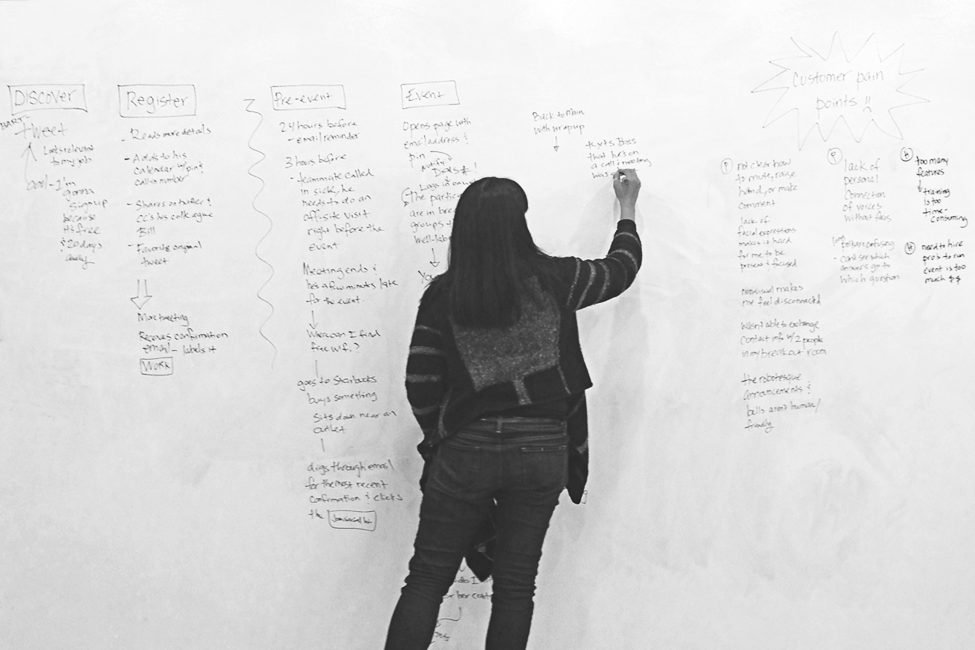 DISCOVER
tweet
looks relevant
to my job
cool - I'm
gonna
sign up
because
it's free
Register
- Reads more details
- Adds to his
calendar w/ put
call-a number
- Shares on twitter &
CC's his colleague
Bill
- Favorite original
tweet
More tweeting
Receives confirmation
email - labels it
WORK
Pre-event
24 hours before
- email reminder
3 hours before
- teammate called
in sick, he
needs to do an
offsite visit
right before the
event
Meeting ends &
he's a few minutes late
for the event.
Where can I find
free wifi?
goes to Starbucks
buys something
Sits down near an
outlet
digs through email
for the most recent
confirmation & clicks
the
Event
Opens page with
email address &
pin
The partici
are in brea
groups
well-lab
Back to Main
with pop up
texts Boss
that he's on
a call / meeting
Customer pain
points !!
not clear how
to mute, raise
hand, or make
comment
lack of
facial expressions
makes it hard
for me to be
present & focused
no visual makes
me feel disconnected
wasn't able to exchange
contact info w/ 2 people
in my breakout room
the robotesque
announcements &
bells aren't human/
friendly
lack of
personal
connection
of voices
without faces
confusing
- can't see which
answers go to
which question
too many
features
training
is too
time-
consuming
need to hire
pro's to run
event is too
much $$